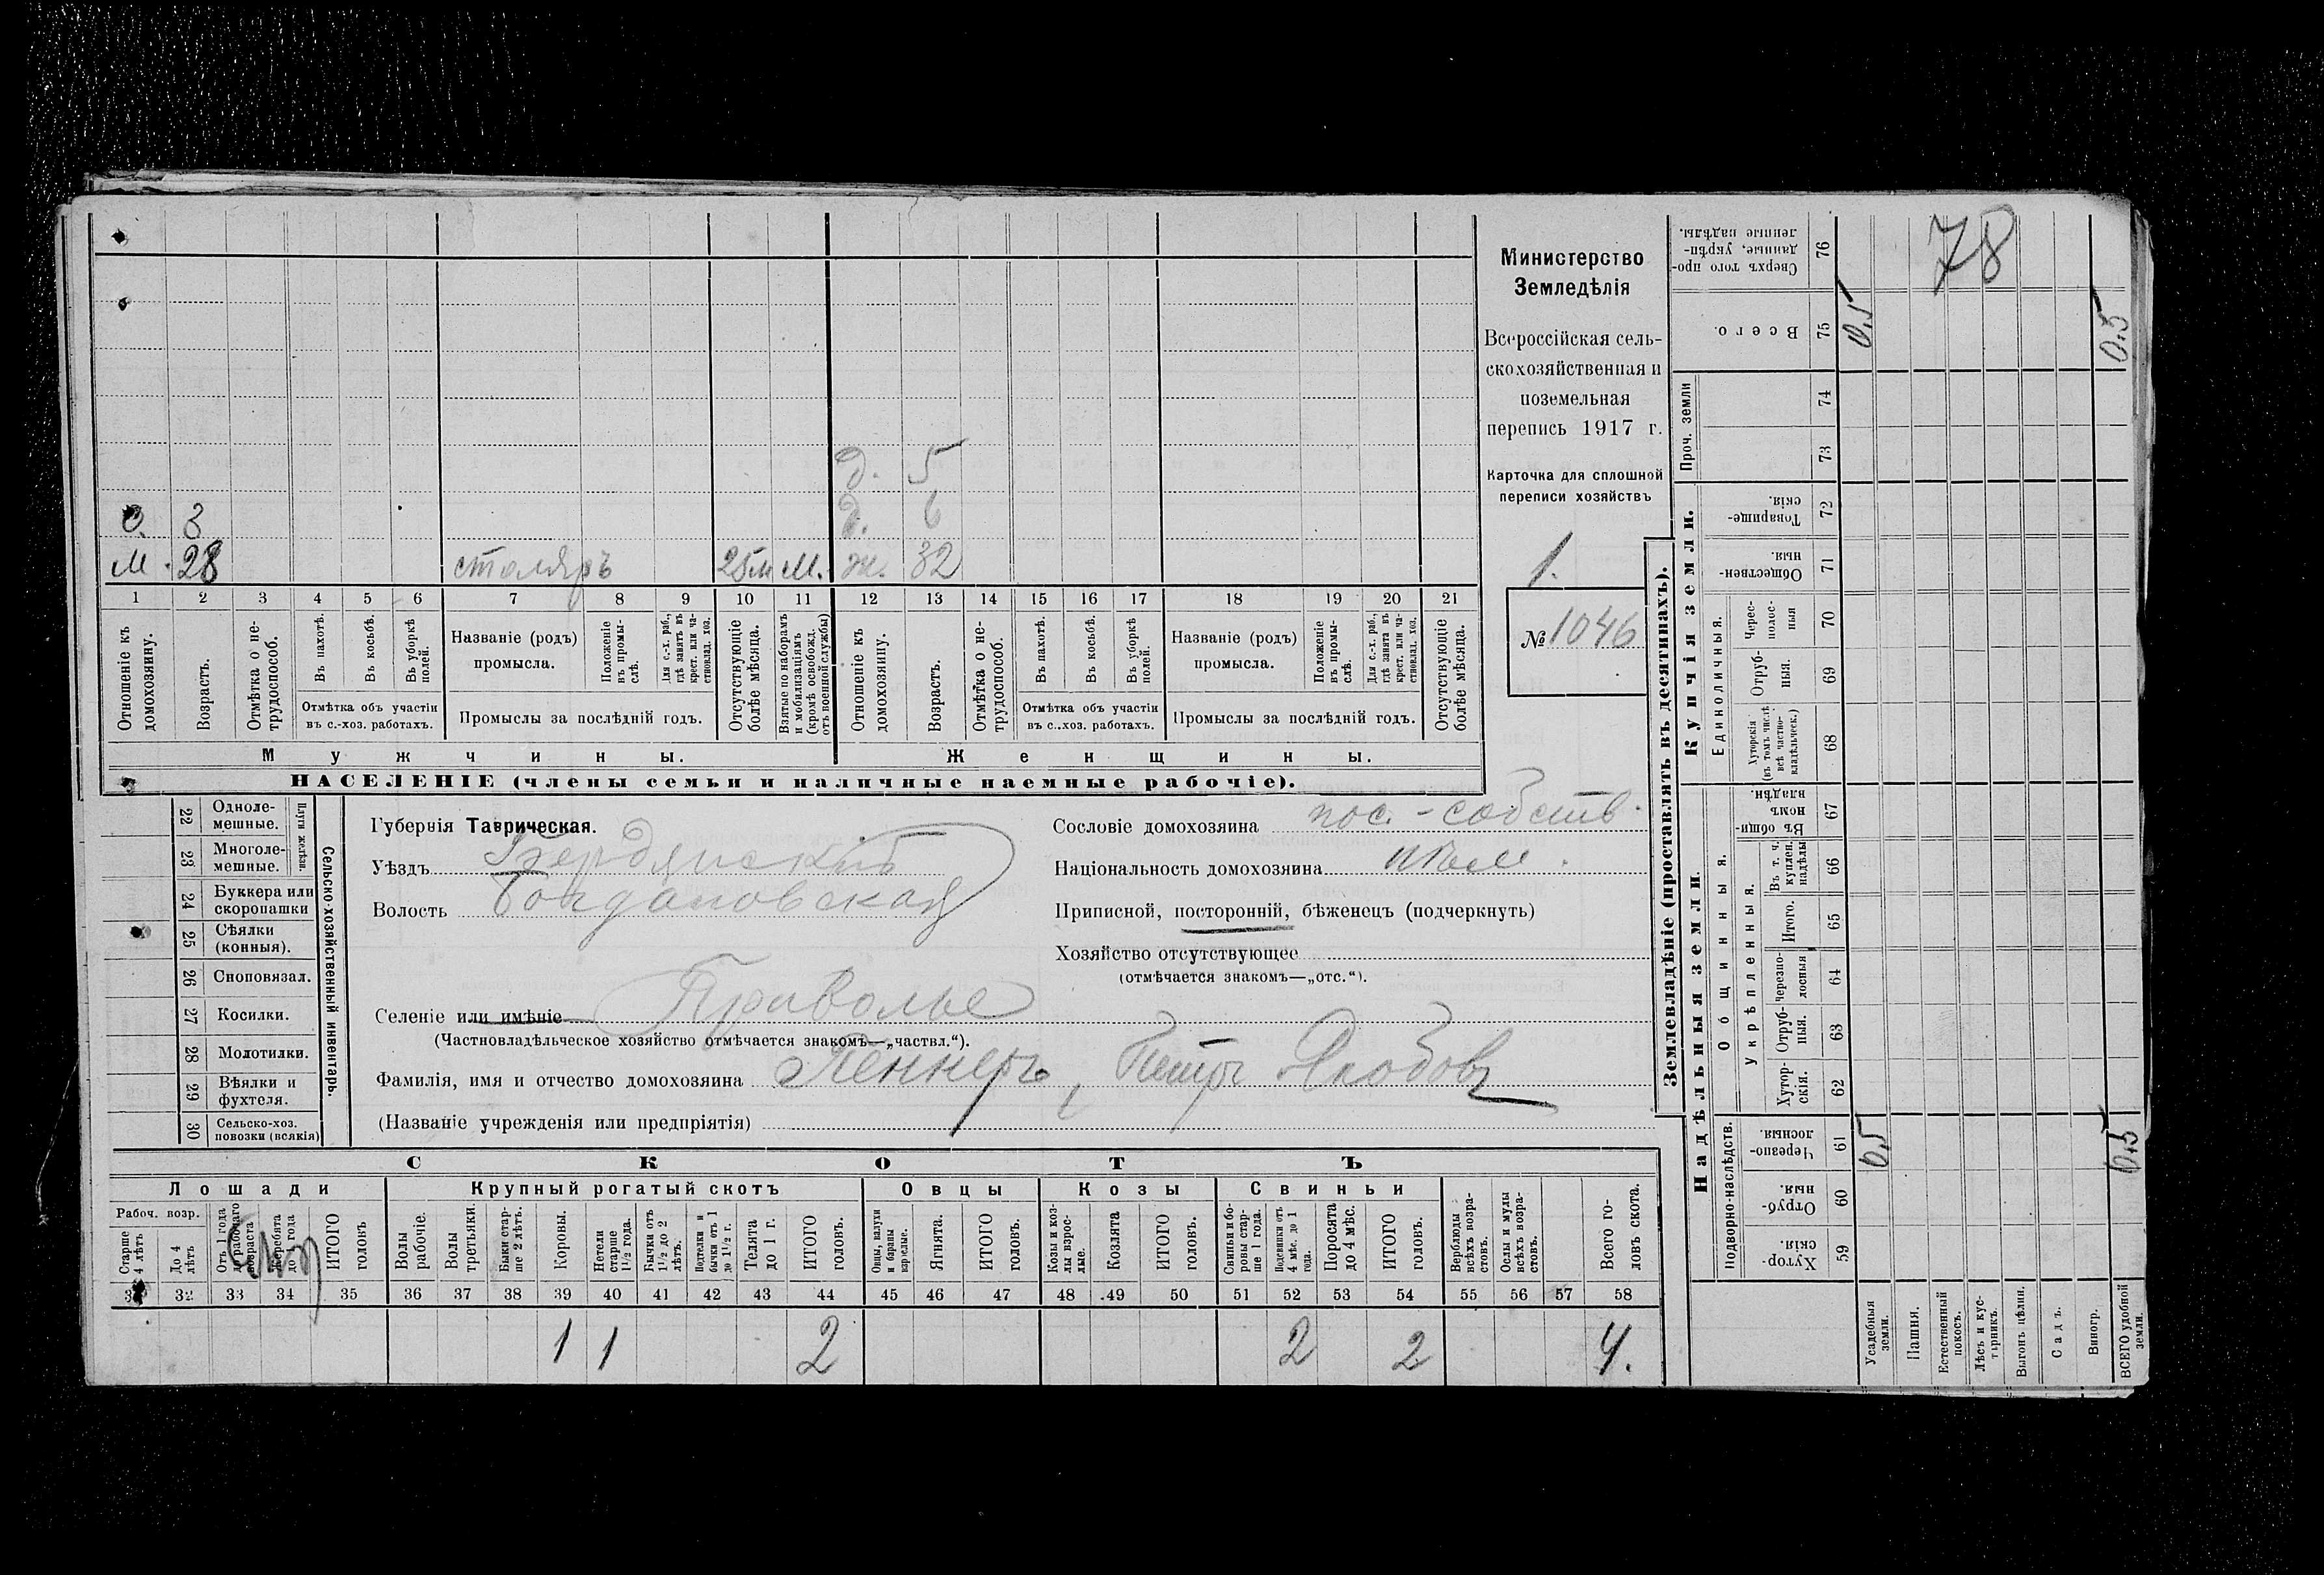 78
Министерство
Земледѣлія
Всероссійская сель-
скохозяйственная и
поземельная
перепись 1917 г.
Карточка для сплошной
переписи хозяйствъ
1.
№ 1046
д. 5
о. 3 д. 6
м. 28 столяръ 25 м м. ж. 32
1 2 3 4 5 6 7 8 9 10 11 12 13 14 15 16 17 18 19 20 21
Отношеніе къ домохозяину.
Возрастъ.
Отмѣтка о не-трудоспособ.
Въ пахотѣ.
Въ косьбѣ.
Въ уборкѣ полей.
Отмѣтка объ участіи въ с.-хоз. работахъ.
Названіе (родъ) промысла.
Положеніе въ промы-слѣ.
Для с.-х. раб., гдѣ занятъ въ крест. или ча-стновлад. хоз.
Промыслы за послѣдній годъ.
Отсутствующіе болѣе мѣсяца.
Взятые по наборамъ и мобилизаціямъ (кромѣ освобожд. отъ военной службы)
Отношеніе къ домохозяину.
Возрастъ.
Отмѣтка о не-трудоспособ.
Въ пахотѣ.
Въ косьбѣ.
Въ уборкѣ полей.
Отмѣтка объ участіи въ с.-хоз. работахъ.
Названіе (родъ) промысла.
Положеніе въ промы-слѣ.
Для с.-х. раб., гдѣ занята въ крест. или ча-стновлад. хоз.
Промыслы за послѣдній годъ.
Отсутствующіе болѣе мѣсяца.
Мужчины. Женщины.
НАСЕЛЕНІЕ (члены семьи и наличные наемные рабочіе).
Сельско-хозяйственный инвентарь.
Плуги желѣзн.
22 Одноле-мешные.
23 Многоле-мешные.
24 Буккера или скоропашки
25 Сѣялки (конныя).
26 Сноповязал.
27 Косилки.
28 Молотилки.
29 Вѣялки и фухтеля.
30 Сельско-хоз. повозки (всякія)
Губернія Таврическая.
Уѣздъ Бердянскій
Волость Богдановская
Селеніе или имѣніе Приволье
(Частновладѣльческое хозяйство отмѣчается знакомъ—„частвл.“).
Фамилія, имя и отчество домохозяина Пеннеръ, Петръ Якобовъ
(Названіе учрежденія или предпріятія)
Сословіе домохозяина пос.-собств.
Національность домохозяина нѣм.
Приписной, посторонній, бѣженецъ (подчеркнуть)
Хозяйство отсутствующее
(отмѣчается знакомъ—„отс.“).
СКОТЪ
Лошади Крупный рогатый скотъ Овцы Козы Свиньи
Рабоч. возр.
Старше 4 лѣтъ
До 4 лѣтъ
Отъ 1 года до рабочаго возраста
Жеребята до 1 года
ИТОГО головъ
Волы рабочіе.
Волы третьяки.
Быки стар-ше 2 лѣтъ.
Коровы.
Нетели старше 1½ года.
Бычки отъ 1½ до 2 лѣтъ.
Подтелки и бычки отъ 1 до 1½ г.
Телята до 1 г.
ИТОГО головъ.
Овцы, валухи и бараны взрослые.
Ягнята.
ИТОГО головъ.
Козы и коз-лы взрос-лые.
Козлята
ИТОГО головъ.
Свиньи и бо-ровы стар-ше 1 года.
Подсвинки отъ 4 мѣс. до 1 года.
Поросята до 4 мѣс.
ИТОГО головъ.
Верблюды всѣхъ возра-стовъ.
Ослы и мулы всѣхъ возра-стовъ.
Всего го-ловъ скота.
31 32 33 34 35 36 37 38 39 40 41 42 43 44 45 46 47 48 49 50 51 52 53 54 55 56 57 58
1 1 2 2 2 4.
Землевладѣніе (проставлять въ десятинахъ).
Надѣльныя земли. Купчія земли.
Подворно-наслѣдств.
Общинныя.
Укрѣпленныя.
Единоличныя.
Проч. земли
59 Хутор-скія.
60 Отруб-ныя.
61 Черезпо-лосныя.
62 Хутор-скія.
63 Отруб-ныя.
64 Черезпо-лосныя
65 Итого.
66 Въ т. ч. куплен. надѣлы
67 Въ общи-номъ владѣн.
68 Хуторскія (въ томъ числѣ всѣ частно-владѣльческ.)
69 Отруб-ныя.
70 Черес-полос-ныя
71 Обществен-ныя.
72 Товарище-скія.
73
74
75 Всего.
76 Сверхъ того про-данные, укрѣп-ленные надѣлы.
Усадебныя земли. 0,5 0,5
Пашня.
Естественный покосъ.
Лѣсъ и кус-тарникъ.
Выгонъ цѣлин.
Садъ.
Виногр.
ВСЕГО удобной земли. 0.5 0.5